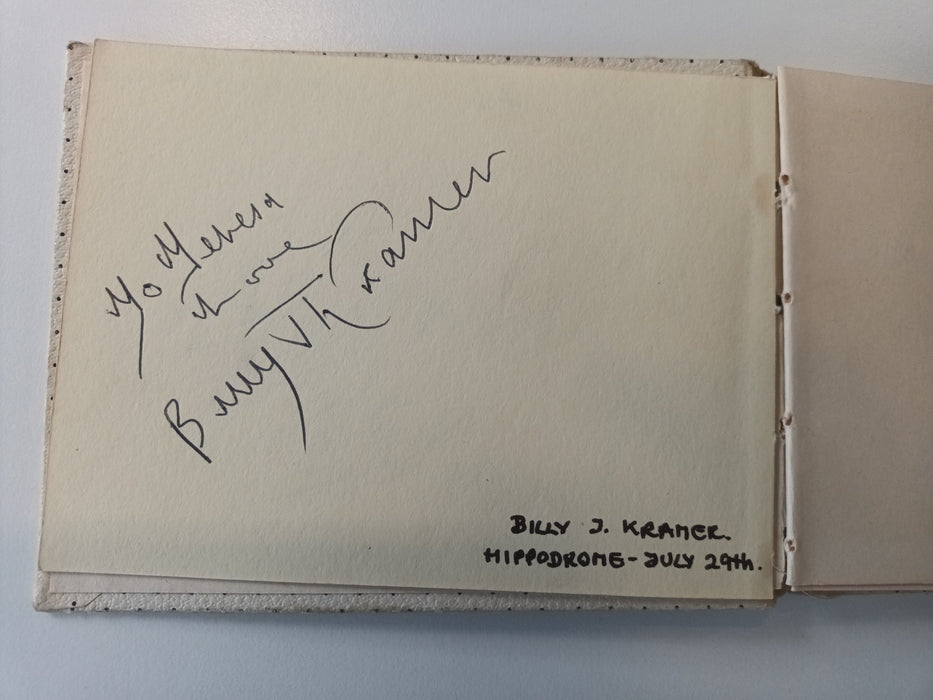 To Teresa
Love
Billy J Kramer
BILLY J. KRAMER.
HIPPODROME - JULY 29th.